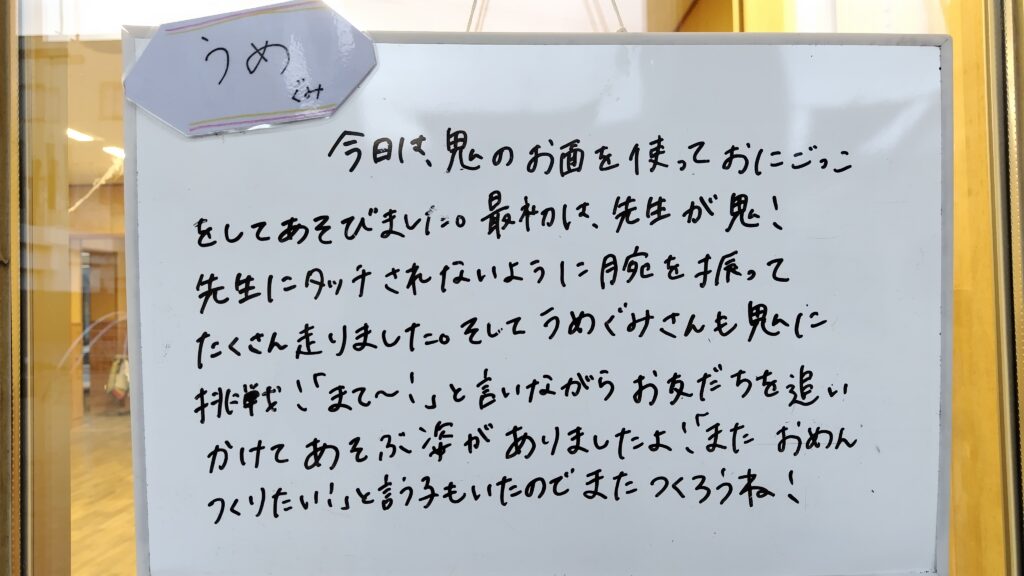 うめ
ぐみ
今日は、鬼のお面を使っておにごっこ
をしてあそびました。最初は、先生が鬼！
先生にタッチされないように腕を振って
たくさん走りました。そしてうめぐみさんも鬼に
挑戦！「まて〜！」と言いながらお友だちを追い
かけてあそぶ姿がありましたよ！「また おめん
つくりたい！」と言う子もいたのでまたつくろうね！